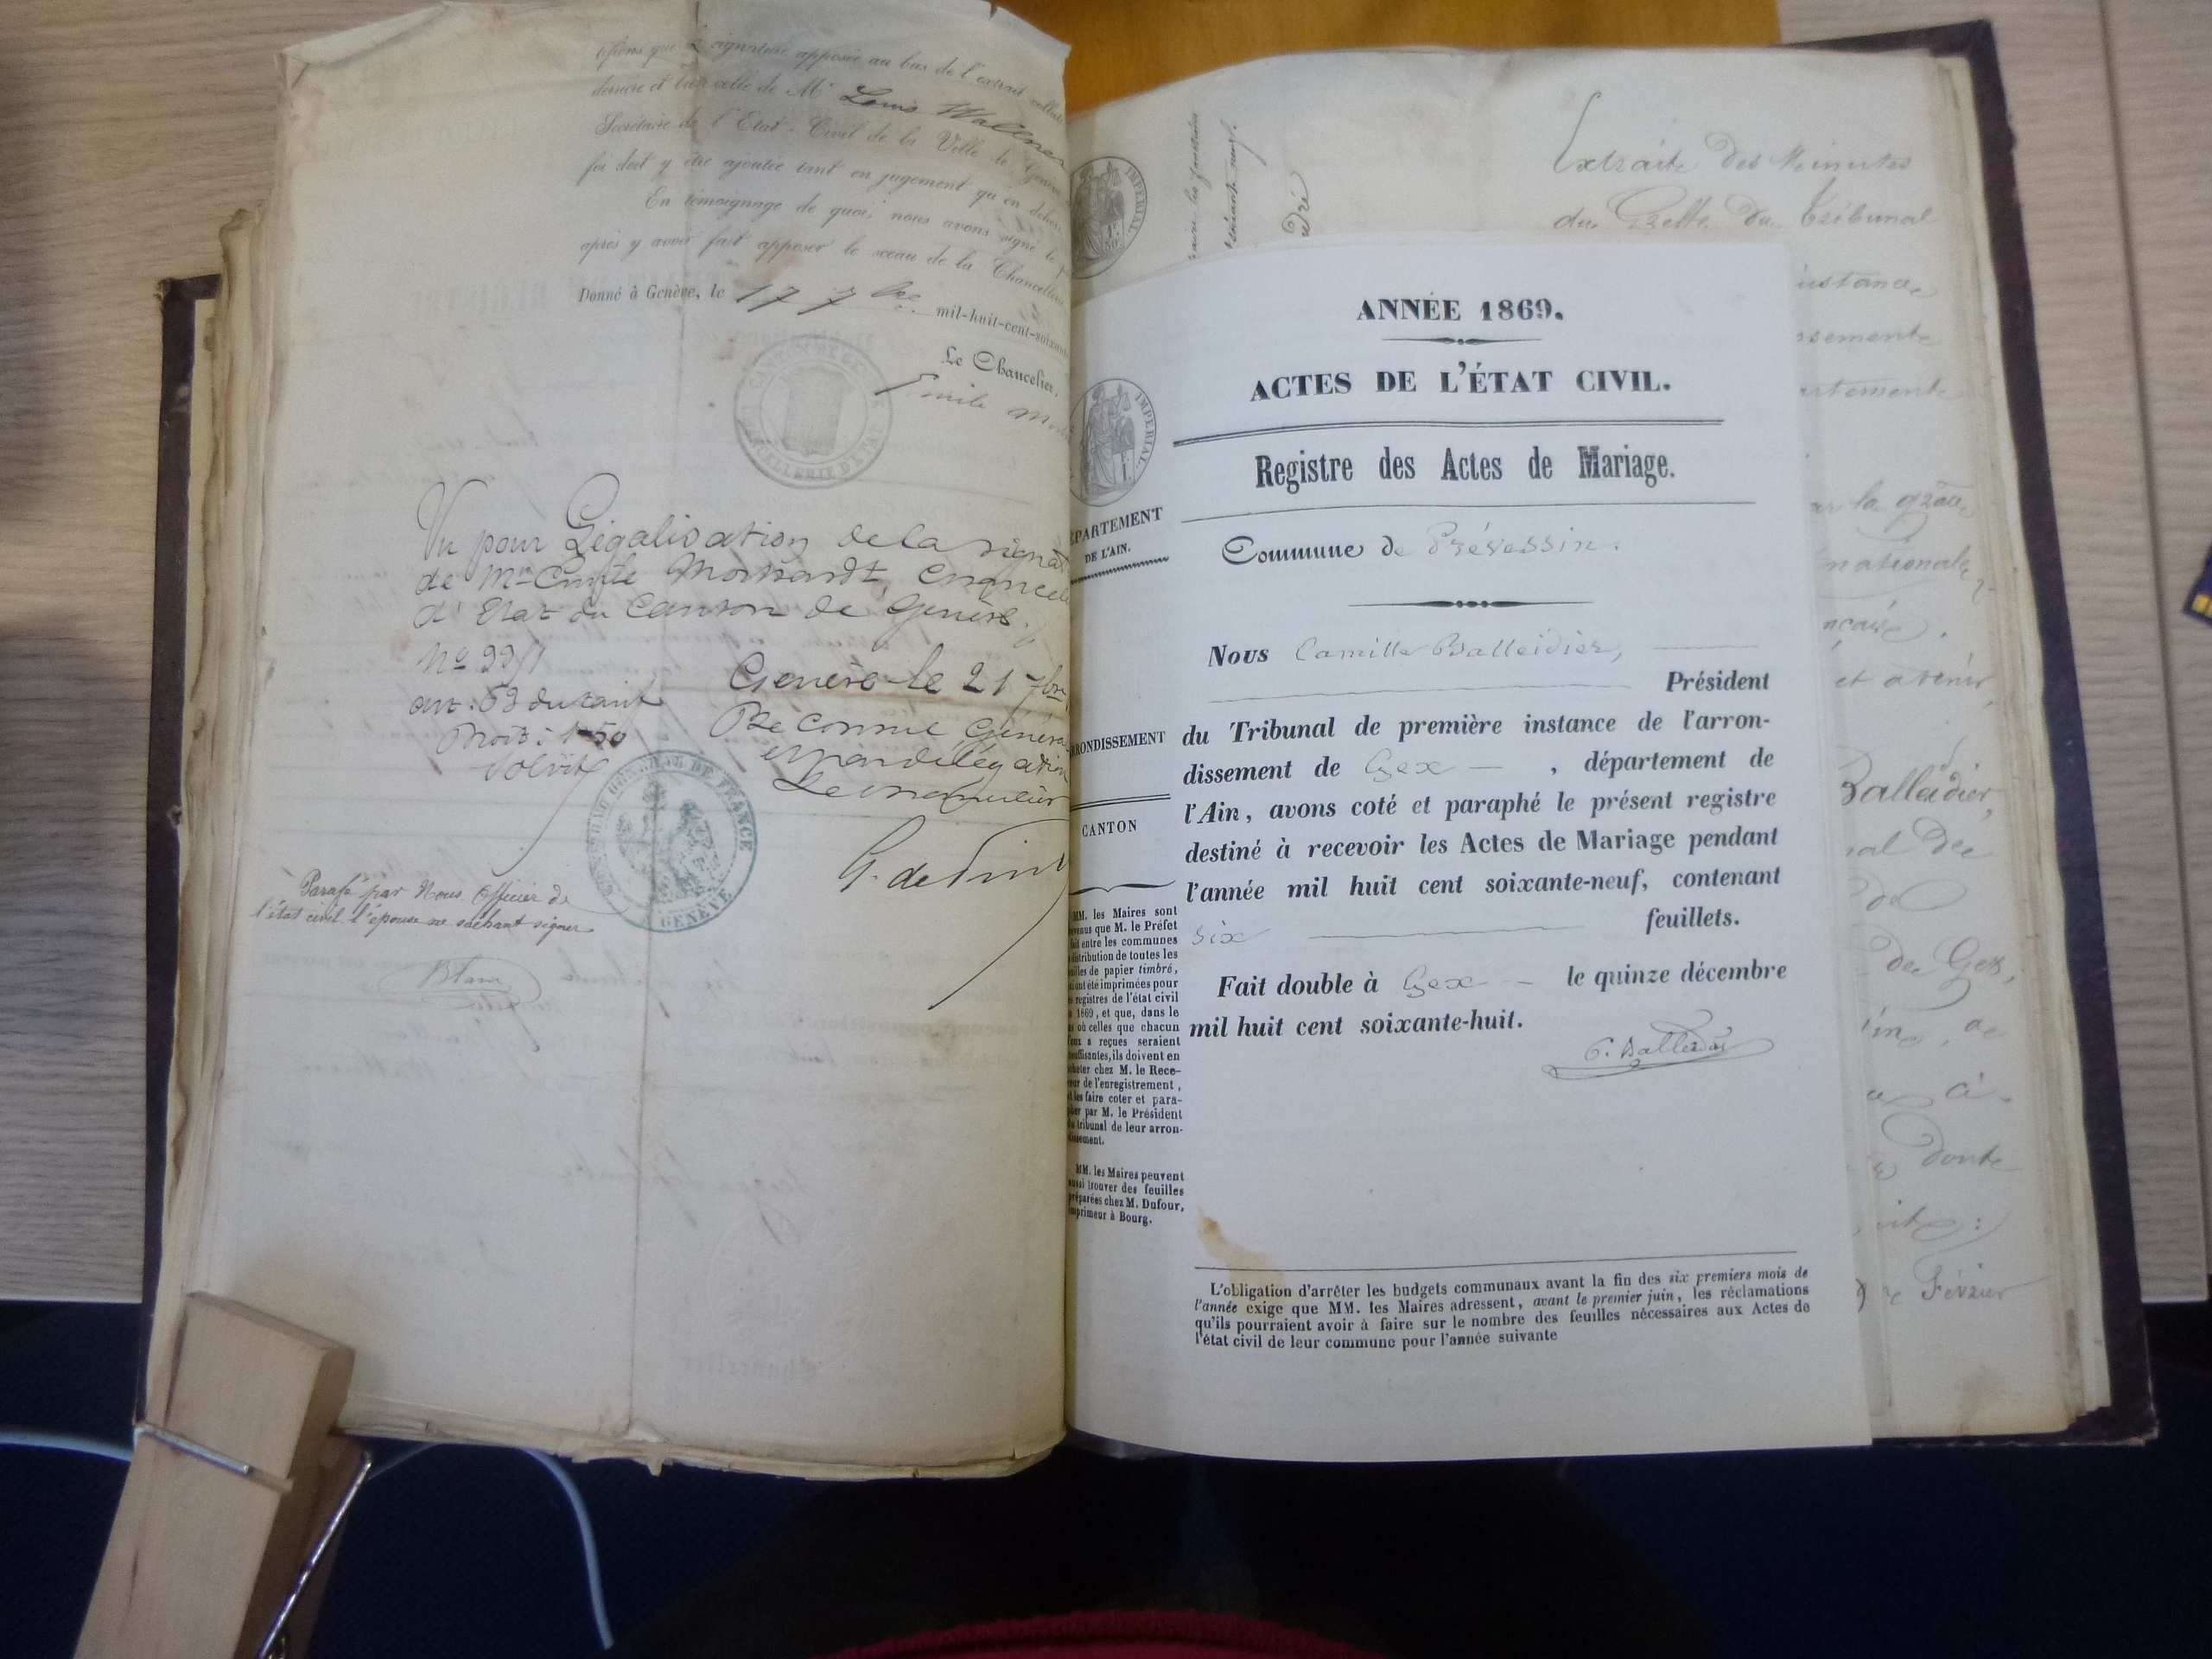 que la signature apposée au bas de l'extrait
derrière est bien celle de Mr Louis Wallner
Secrétaire de l'Etat-Civil de la Ville de Genève
foi doit y être ajoutée tant en jugement qu'en dehors
En témoignage de quoi, nous avons signé le
après y avoir fait apposer le sceau de la Chancellerie
Donné à Genève, le 17 7bre mil-huit-cent-soixante
Le Chancelier,
Emile
CHANCELLERIE D'ETAT
Vu pour Légalisation de la signat
de Mr Emile Moissardt, Chancel
d'Etat du Canton de Genève.
No 99/1
art: 53 du tarif
Droit: 1-50
Genève le 21 7bre
Le Consul Général
et par délégation
Le chancelier
G. de
DE FRANCE
A GENÈVE
Parafé par Nous Officier de
l'état civil l'épouse ne sachant signer
Blanc
IMPERIAL.
1F 50
IMPERIAL.
Extrait des Minutes
du Greffe du Tribunal
instance
ANNÉE 1869.
ACTES DE L'ÉTAT CIVIL.
Registre des Actes de Mariage.
DÉPARTEMENT
DE L'AIN.
Commune de Prévessin.
Nous Camille Balleidier,
Président
ARRONDISSEMENT
CANTON
du Tribunal de première instance de l'arron-
dissement de Gex , département de
l'Ain, avons coté et paraphé le présent registre
destiné à recevoir les Actes de Mariage pendant
l'année mil huit cent soixante-neuf, contenant
six feuillets.
Fait double à Gex le quinze décembre
mil huit cent soixante-huit.
C. Balleidier
MM. les Maires sont
prévenus que M. le Préfet
fait entre les communes
distribution de toutes les
feuilles de papier timbré,
qui ont été imprimées pour
les registres de l'état civil
de 1869, et que, dans le
cas où celles que chacun
d'eux a reçues seraient
insuffisantes, ils doivent en
acheter chez M. le Rece-
veur de l'enregistrement,
et les faire coter et para-
pher par M. le Président
du tribunal de leur arron-
dissement.
MM. les Maires peuvent
aussi trouver des feuilles
préparées chez M. Dufour,
imprimeur à Bourg.
L'obligation d'arrêter les budgets communaux avant la fin des six premiers mois de
l'année exige que MM. les Maires adressent, avant le premier juin, les réclamations
qu'ils pourraient avoir à faire sur le nombre des feuilles nécessaires aux Actes de
l'état civil de leur commune pour l'année suivante
par la grâce
nationale
et avenir,
Balleidier,
de Gex,
dont
Février